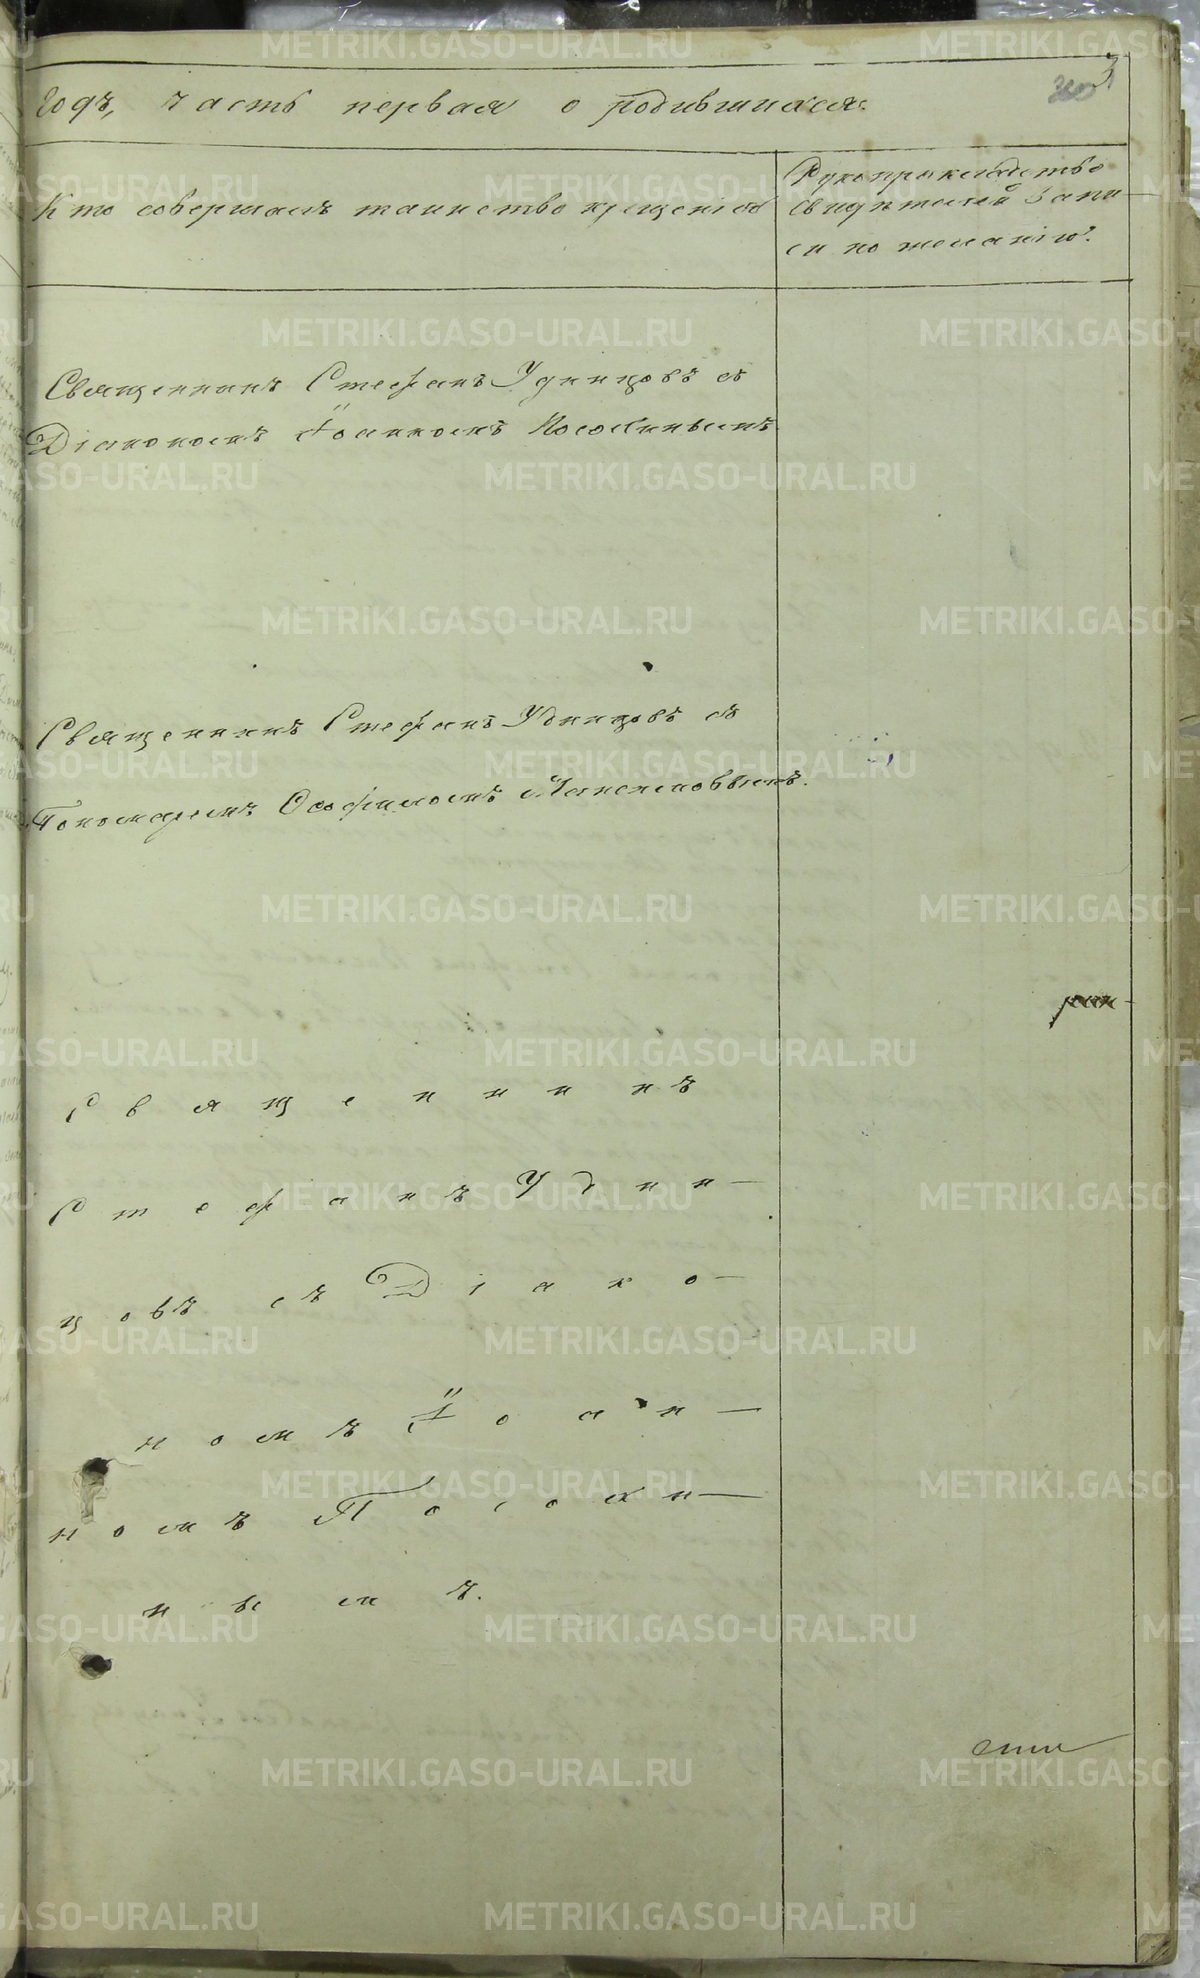 3
360
Годъ, часть первая о родившихся.
Кто совершалъ таинство крещенія
Рукоприкладство
свидѣтелей запи-
си по желанію.
Священникъ Стефанъ Удинцовъ съ
Діакономъ Іоанномъ Пососкинымъ
Священникъ Стефанъ Удинцовъ съ
Пономаремъ Ѳеофиломъ Максимовымъ.
Священникъ
Стефанъ Удин-
цовъ съ Діако-
номъ Іоан-
номъ Пососки-
нымъ.
METRIKI.GASO-URAL.RU